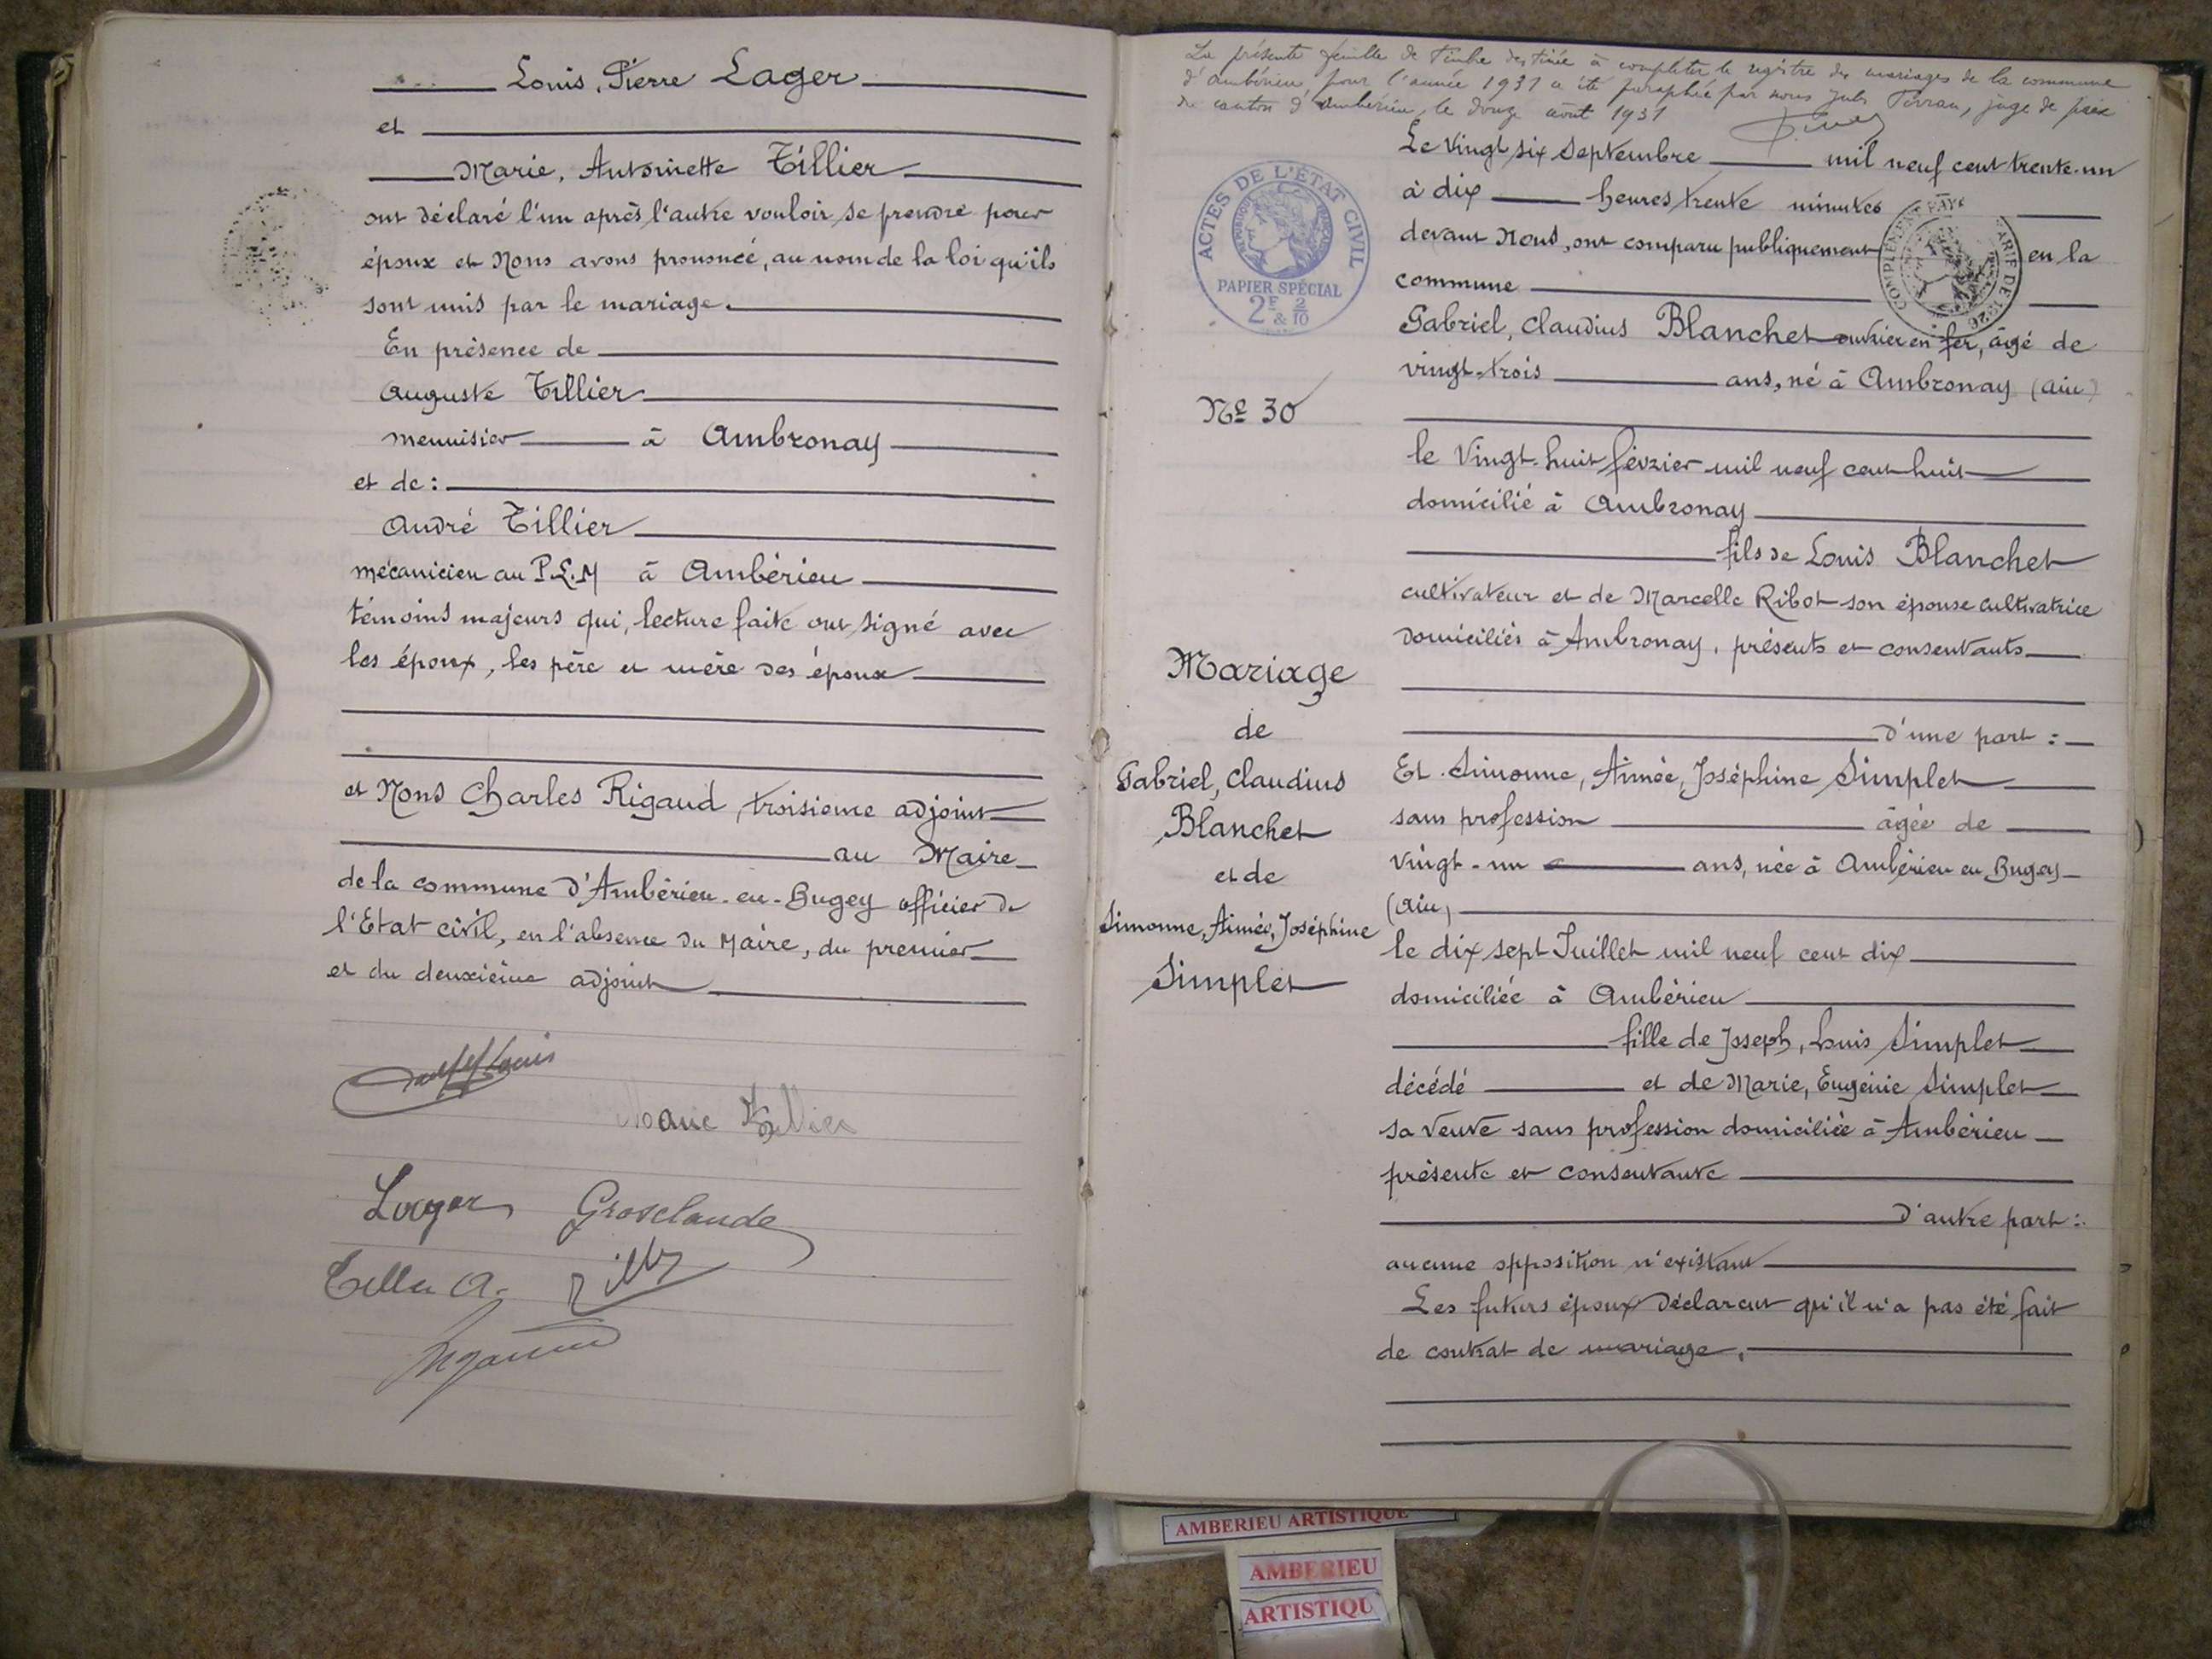 Louis, Pierre Lager
et
Marie, Antoinette Tillier
ont déclaré l'un après l'autre vouloir se prendre pour
époux et Nous avons prononcé, au nom de la loi qu'ils
sont unis par le mariage.
En présence de
Auguste Tillier
menuisier à Ambronay
et de :
André Tillier
mécanicien au P.L.M à Ambérieu
témoins majeurs qui, lecture faite ont signé avec
les époux, les père et mère des époux
et Nous Charles Rigaud, troisième adjoint
au Maire
de la commune d'Ambérieu-en-Bugey officier de
l'Etat civil, en l'absence du Maire, du premier
et du deuxième adjoint
Louis
Marie Tillier
Lager Grosclaude
Tillier A.
La présente feuille de timbre destinée à compléter le registre des mariages de la commune
d'Ambérieu, pour l'année 1931 a été paraphée par nous Jules Perrau, juge de paix
du canton d'Ambérieu, le douze août 1931
ACTES DE L'ÉTAT CIVIL
RÉPUBLIQUE FRANÇAISE
PAPIER SPÉCIAL
2F & 2/10
Le Vingt six Septembre mil neuf cent trente-un
à dix heures trente minutes
devant Nous, ont comparu publiquement en la
commune
COMPLÉMENT PAYÉ TARIF DE 1926
Gabriel, Claudius Blanchet ouvrier en fer, âgé de
vingt-trois ans, né à Ambronay (Ain)
le Vingt-huit février mil neuf cent huit
domicilié à Ambronay
fils de Louis Blanchet
cultivateur et de Marcelle Ribot son épouse cultivatrice
domiciliés à Ambronay, présents et consentants
d'une part :
Et Simonne, Aimée, Joséphine Simplet
sans profession âgée de
vingt-un ans, née à Ambérieu en Bugey
(Ain)
le dix sept Juillet mil neuf cent dix
domiciliée à Ambérieu
fille de Joseph, Louis Simplet
décédé et de Marie, Eugénie Simplet
sa veuve sans profession domiciliée à Ambérieu
présente et consentante
d'autre part :
aucune opposition n'existant
Les futurs époux déclarent qu'il n'a pas été fait
de contrat de mariage.
No 30
Mariage
de
Gabriel, Claudius
Blanchet
et de
Simonne, Aimée, Joséphine
Simplet
AMBERIEU ARTISTIQUE
AMBERIEU
ARTISTIQU